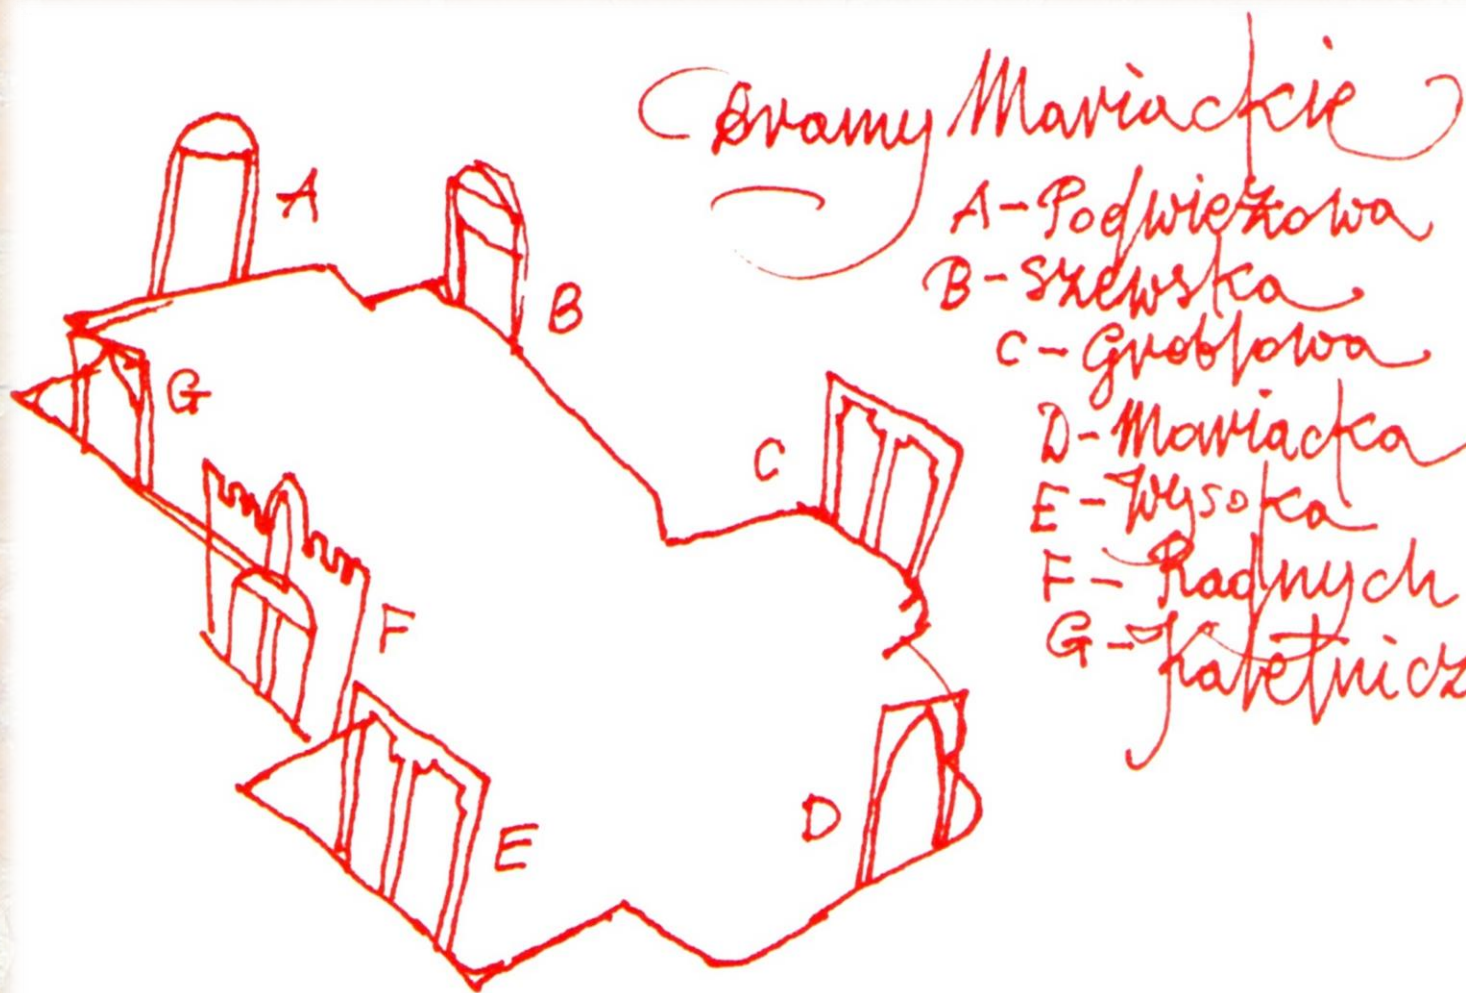 Bramy Mariackie
A-Podwieżowa
B-Szewska
C-Groblowa
D-Mariacka
E-Wysoka
F-Radnych
G-Kaletnicz
A
B
G
C
F
D
E